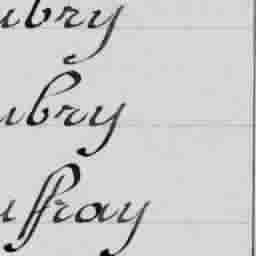 ubry
ubry
uffray